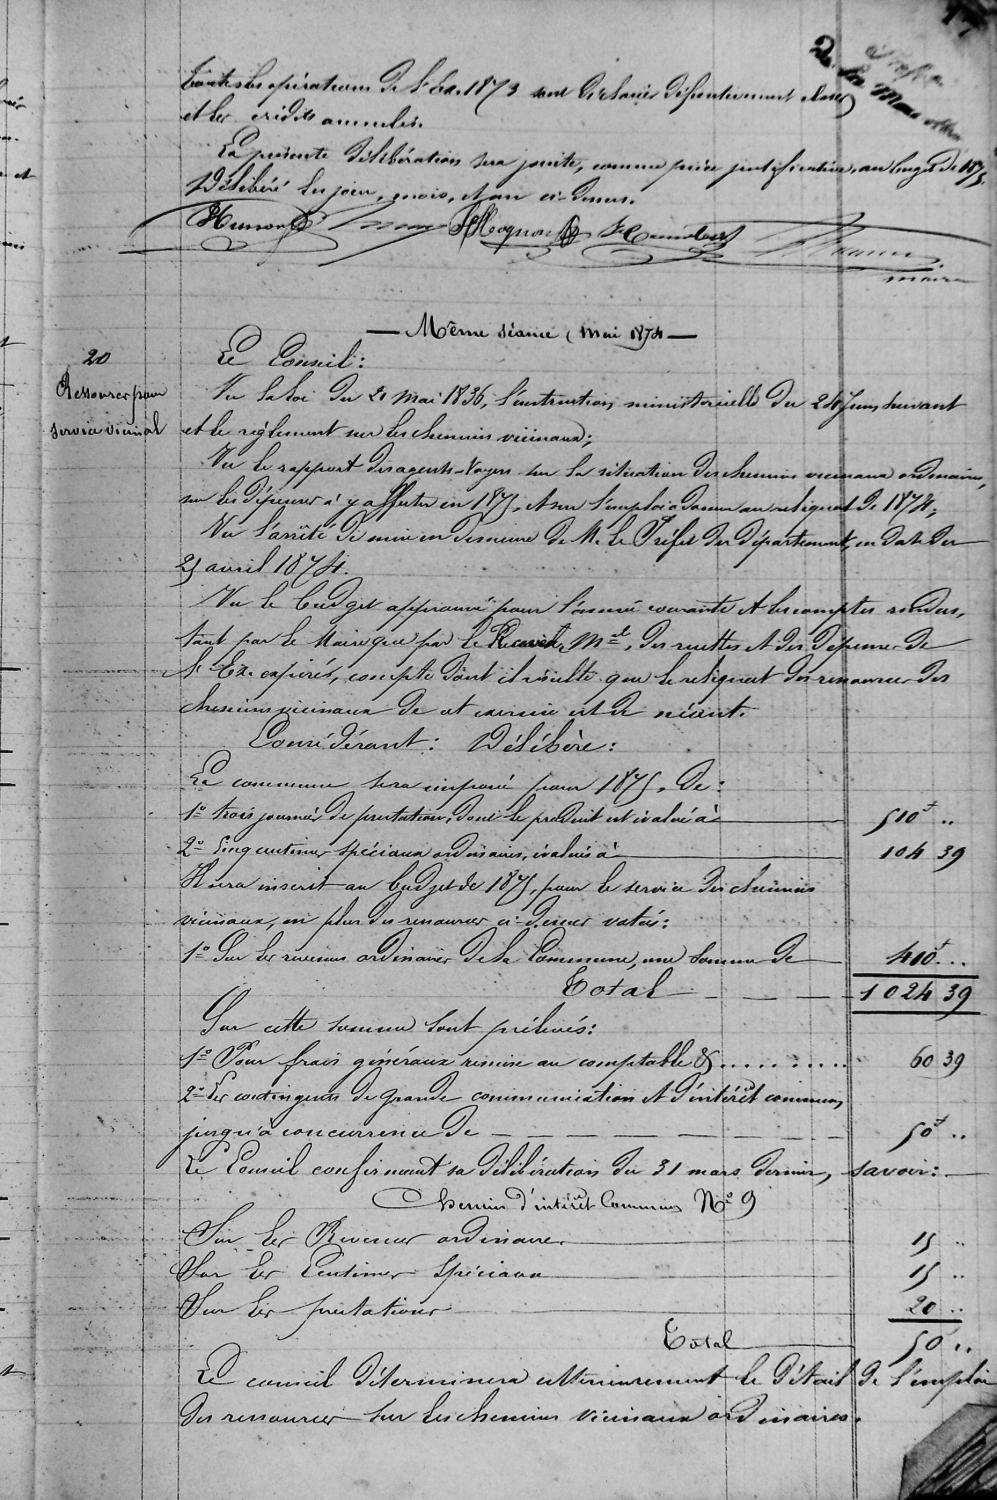 17
Toutes les opérations de l'Ex. 1873 sont déclarées définitivement closes
et les crédits annulés.
La présente délibération sera jointe, comme pièce justificative, au budget de 1875.
Délibéré les jour, mois, et an ci-dessus.
maire
— Même séance (mai 1874 —
20
Ressources pour
service vicinal
Le Conseil:
Vu la loi du 21 mai 1836, l'instruction ministérielle du 24 Juin suivant
et le règlement sur les chemins vicinaux;
Vu le rapport des agents-Voyers sur la situation des chemins vicinaux ordinaires,
sur les dépenses à y affecter en 1875, et sur l'emploi à donner au reliquat de 1874;
Vu l'arrêté de mise en demeure de M. le Préfet du département, en date du
25 avril 1874.
Vu le budget approuvé pour l'année courante et les comptes rendus,
tant par le Maire que par le Receveur Mal, des recettes et des dépenses de
l'Ex. expiré, compte dont il résulte que le reliquat des ressources des
chemins vicinaux de cet exercice est de néant.
Considérant: Délibère:
La commune sera imposée pour 1875, de:
1° trois journées de prestation, dont le produit est évalué à — 510f ..
2° Cinq centimes spéciaux ordinaires, évalués à — 104 39
Il sera inscrit au budget de 1875, pour le service des chemins
vicinaux, en plus des ressources ci-dessus votées:
1° Sur les revenus ordinaires de la Commune, une somme de — 410f ..
Total — 1024 39
Sur cette somme sont prélevés:
1° Pour frais généraux remise au comptable &. ......... 60 39
2° Les contingents de grande communication et d'intérêt commun,
jusqu'à concurrence de — 50f ..
Le Conseil confirmant sa délibération du 31 mars dernier, savoir: —
Chemin d'intérêt Commun N° 9
Sur les Revenus ordinaires — 15 ..
Sur les Centimes spéciaux — 15 ..
Sur les prestations — 20 ..
Total — 50 ..
Le conseil déterminera ultérieurement le détail de l'emploi
des ressources sur les chemins vicinaux ordinaires.